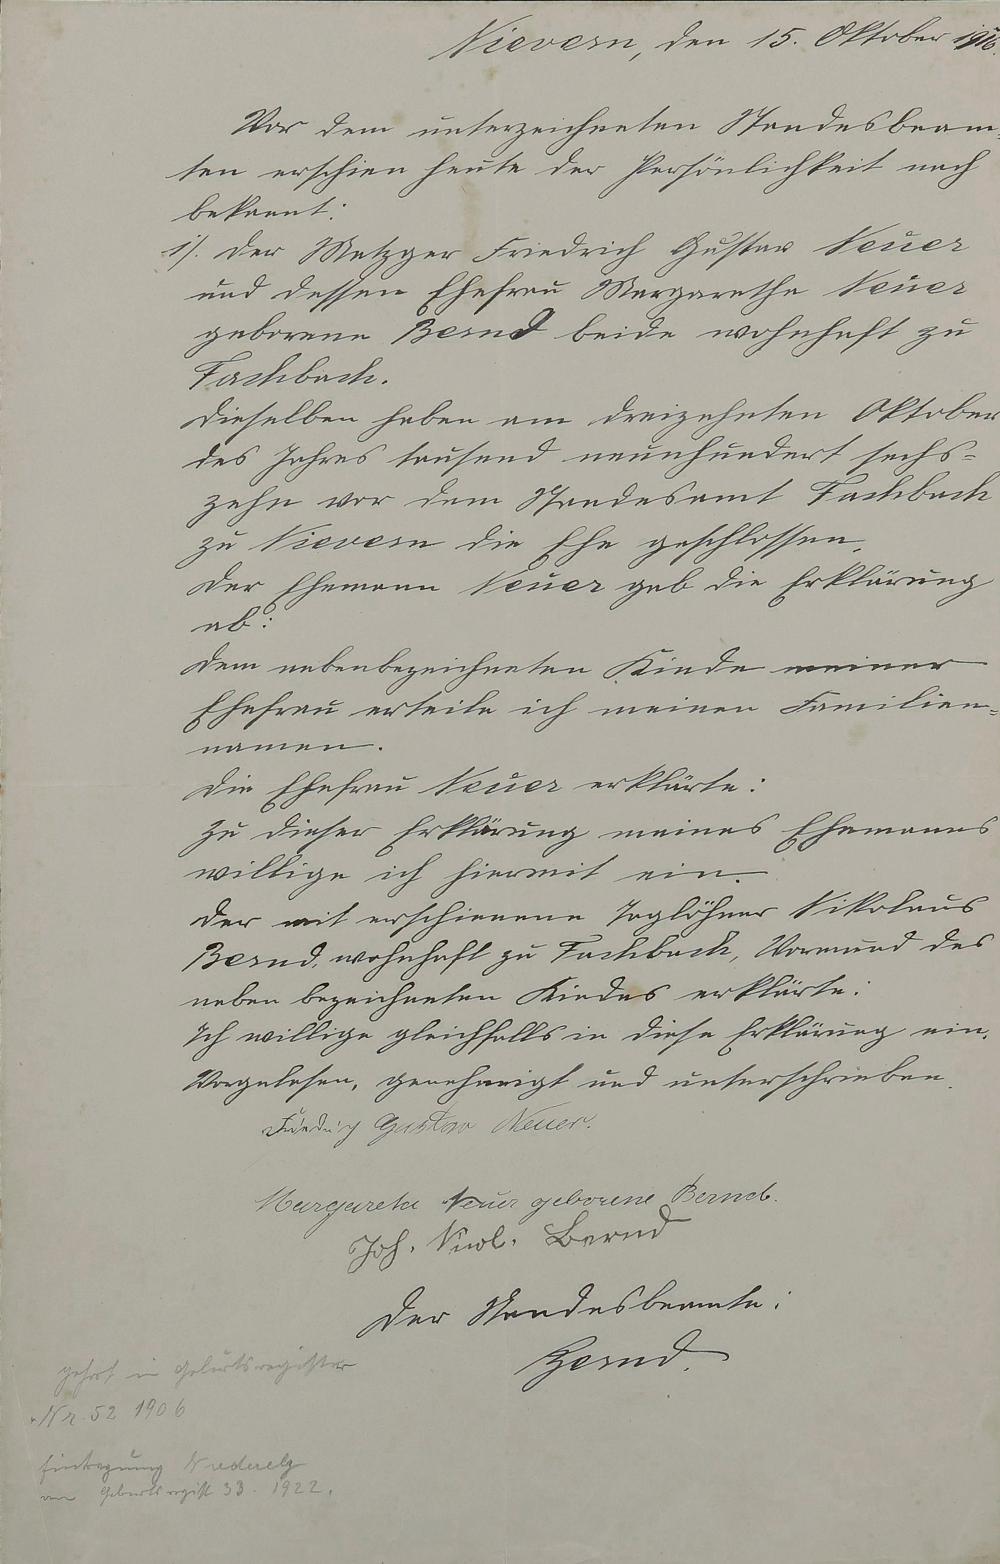 Nievern, den 15. Oktober 1916.
Vor dem unterzeichneten Standesbeam-
ten erschien heute der Persönlichkeit nach
bekannt:
1). Der Metzger Friedrich Gustav Neuer
und dessen Ehefrau Margarethe Neuer
geborene Bernd beide wohnhaft zu
Fachbach.
Dieselben haben am dreizehnten Oktober
des Jahres tausend neunhundert sechs-
zehn vor dem Standesamt Fachbach
zu Nievern die Ehe geschlossen.
Der Ehemann Neuer gab die Erklärung
ab:
Dem nebenbezeichneten Kinde meiner
Ehefrau erteile ich meinen Familien-
namen.
Die Ehefrau Neuer erklärte:
Zu dieser Erklärung meines Ehemannes
willige ich hiermit ein.
Der mit erschienene Taglöhner Nikolaus
Bernd, wohnhaft zu Fachbach, Vormund des
neben bezeichneten Kindes erklärte:
Ich willige gleichfalls in diese Erklärung ein.
Vorgelesen, genehmigt und unterschrieben.
Friedrich Gustav Neuer.
Margareta Neuer geborene Bernd.
Joh. Nicol. Bernd
Der Standesbeamte:
gehört in Geburtsregister
Nr. 52 1906
Eintragung
Geburtsregist 33. 1922.